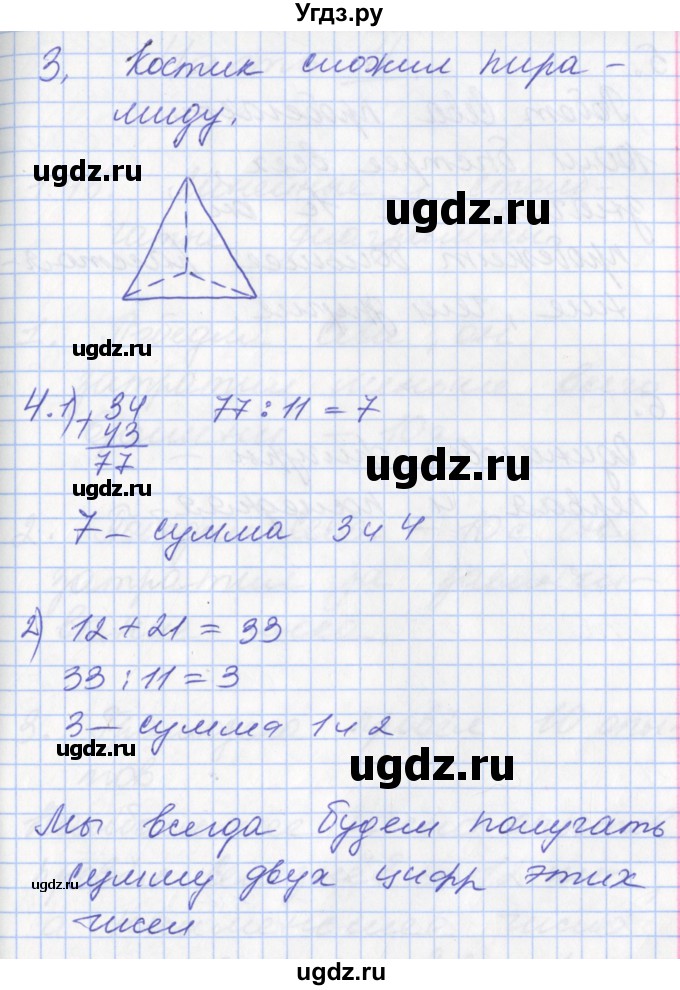 Угдз.ру
3, Костик сложил пира-
миду.
ugdz.ru
ugdz.ru
ugdz.ru
4.1) + 34 77 : 11 = 7
43
77
ugdz.ru
ugdz.ru
7 – сумма 3 и 4
2) 12 + 21 = 33
33 : 11 = 3
3 – сумма 1 и 2
ugdz.ru
ugdz.ru
Мы всегда будем получать
сумму двух цифр этих
ugdz.ru
чисел
ugdz.ru